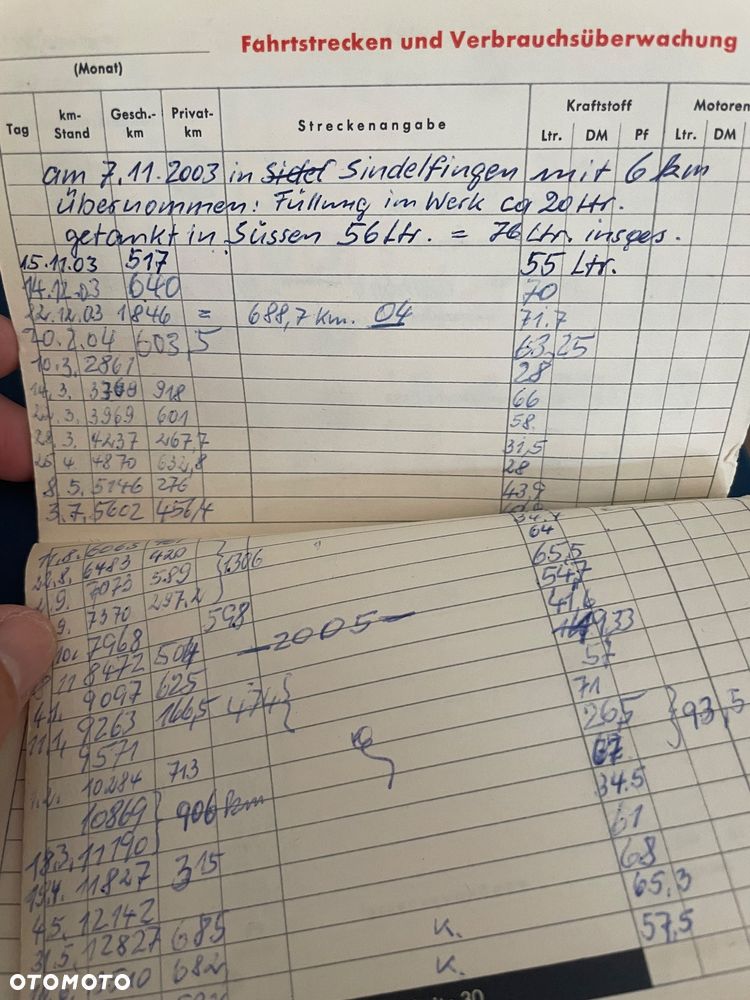 Fahrtstrecken und Verbrauchsüberwachung
(Monat)
Tag km-Stand Gesch.-km Privat-km Streckenangabe Kraftstoff Ltr. DM Pf Motoren Ltr. DM
am 7.11.2003 in Sindelfingen mit 6 km
übernommen: Füllung im Werk ca 20 Ltr.
getankt in Süssen 56 Ltr. = 76 Ltr. insges.
15.11.03 517 55 Ltr.
14.12.03 640 70
22.12.03 1846 = 688,7 km. 04 71.7
20.2.04 603,5 63,25
10.3. 2861 28
14.3. 918 66
3969 601 58
28.3. 4237 267,7 31,5
4870 632,8 28
8.5. 5146 276 43,9
3.7. 5602 456,4
34,4
64
6483 420 1306 65,5
7073 589 54,7
9. 7370 297,2 41,6
10. 7968 598 33
11 8472 504 -2005- 57
9097 625 71
11.1. 9263 166,5 474 26,5 93,5
9571 67
10284 713 34.5
10869 906 km 61
18.3. 11190 68
11827 315 65,3
4.5. 12142 57,5
31.5. 12827 685 K.
682 K.
OTOMOTO